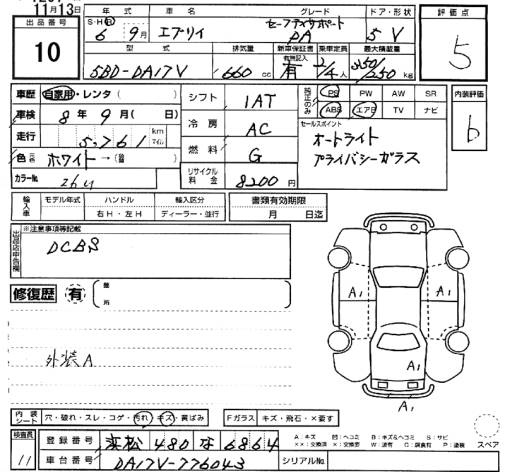 11月13日
出品番号
10
年式 車名 グレード ドア・形状
S・H・R 6 9月 エブリイ セーフティサポート PA 5 V
型式 排気量 新車保証書 有無記入 乗車定員 最大積載量
5BD-DA17V 660 cc 有 2/4人 350/250kg
評価点
5
車歴 自家用・レンタ
車検 8年9月( 日)
走行 5,761 km マイル
色 元色 ホワイト→(替
カラーNo. 26U
シフト 1AT
冷房 AC
燃料 G
リサイクル料金 8200円
純正のみ PS PW AW SR
ABS エアB TV ナビ
セールスポイント
オートライト
プライバシーガラス
内装評価
b
輸入車 モデル年式 ハンドル 輸入区分
右H・左H ディーラー・並行
書類有効期限
月 日迄
出品店申告欄
※注意事項等記載
DCBS
修復歴 有 箇所
外装A
A1
A1
A1
A1
内装シート 穴・破れ・スレ・コゲ・汚れ・キズ・黄ばみ
Fガラス キズ・飛石・×要す
検査員
11
登録番号 浜松 480 な 6864
車台番号 DA17V-776043
A:キズ U:凹ミ B:キズ&凹ミ S:サビ
××:交換済 ×:交換要 W:波有 C:腐食有 P:塗装
スペア
シリアルNo.